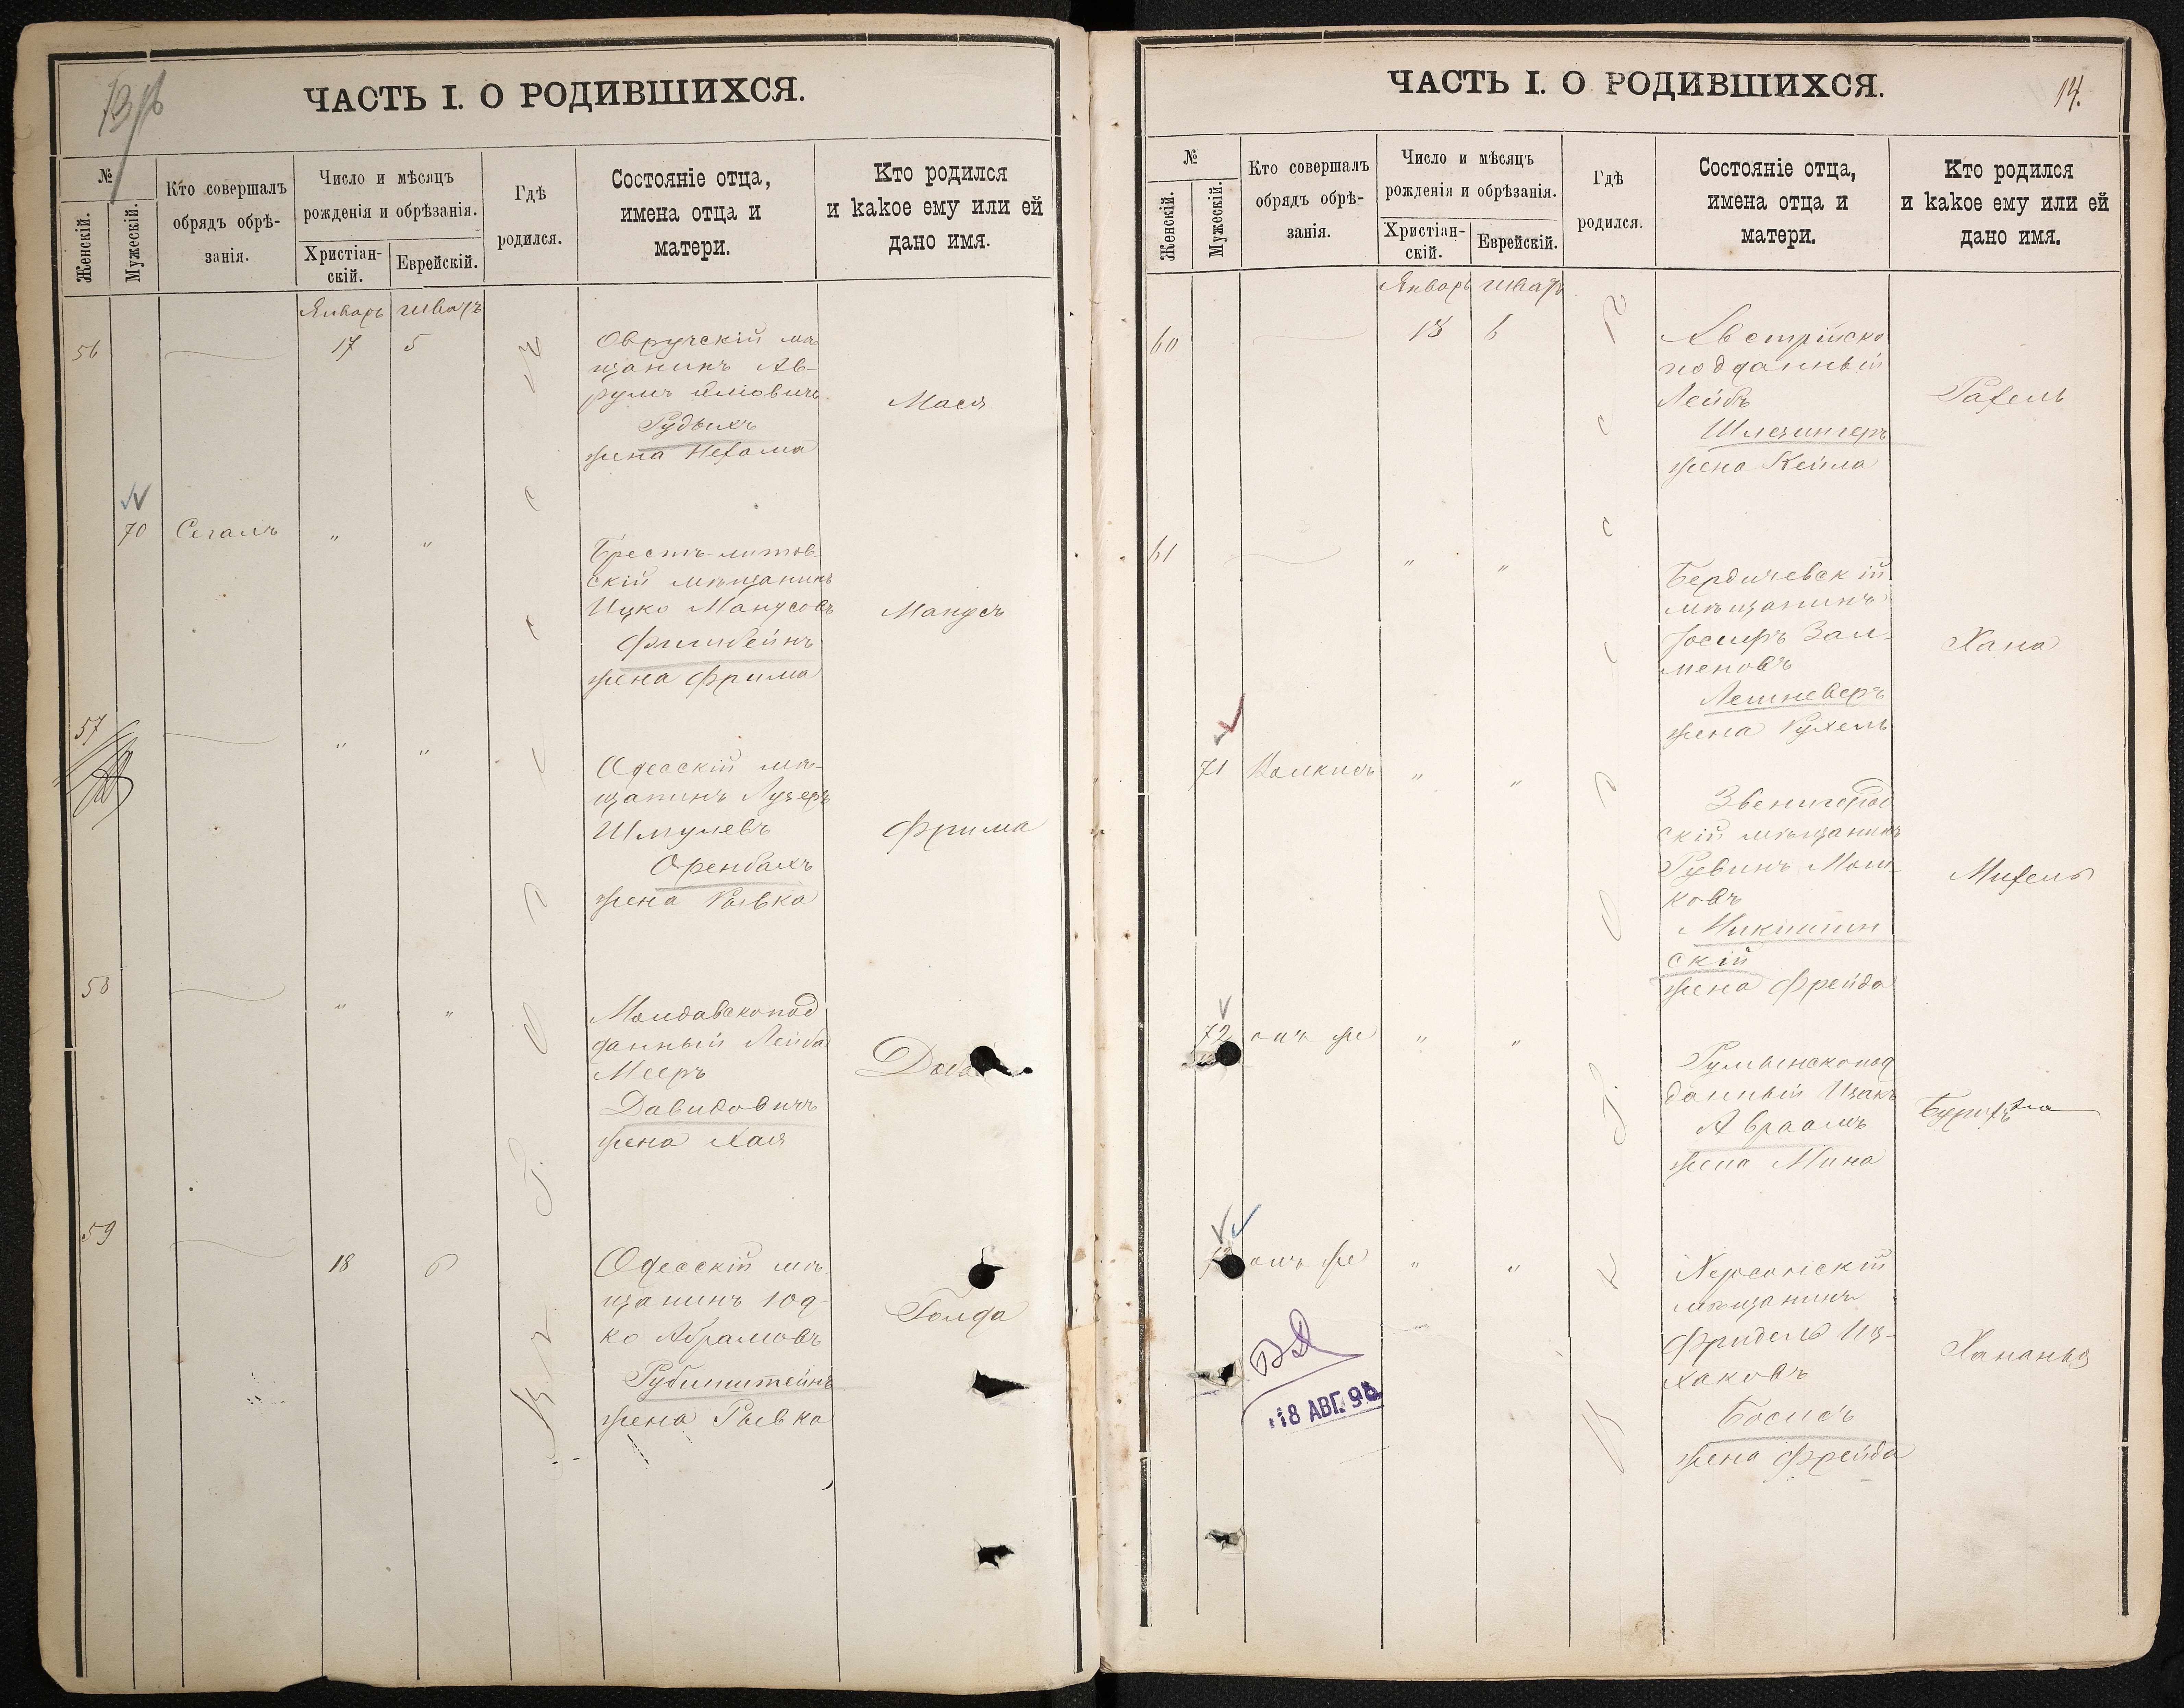 13
ЧАСТЬ I. О РОДИВШИХСЯ.
№
Женскій.
Мужескій.
Кто совершалъ
обрядъ обрѣ-
занія.
Число и мѣсяцъ
рожденія и обрѣзанія.
Христіан-
скій.
Еврейскій.
Гдѣ
родился.
Состояніе отца,
имена отца и
матери.
Кто родился
и какое ему или ей
дано имя.
Январь Шватъ
56 17 5
Овручскій мѣ-
щанинъ Ав-
румъ
Рудыхъ
жена Нехама
Мася
70 Сегалъ " "
Брестъ-литов-
скій мѣщанинъ
Ицко Манусовъ
Фишбейнъ
жена Фрима
Манусъ
57 " "
Одесскій мѣ-
щанинъ Лузеръ
Шмулевъ
Оренбахъ
жена Рывка
Фрима
58 " "
Молдавскопод
данный Лейба
Мееръ
Давидовичъ
жена Хая
59 18 6
Одесскій мѣ-
щанинъ Юд-
ко Абрамовъ
Рубинштейнъ
жена Рывка
Голда
ЧАСТЬ I. О РОДИВШИХСЯ.
14.
№
Женскій.
Мужескій.
Кто совершалъ
обрядъ обрѣ-
занія.
Число и мѣсяцъ
рожденія и обрѣзанія.
Христіан-
скій.
Еврейскій.
Гдѣ
родился.
Состояніе отца,
имена отца и
матери.
Кто родился
и какое ему или ей
дано имя.
Январь Шватъ
60 18 6
Австрійско
подданный
Лейбъ
Шлезингеръ
жена Кейла
Рахель
61 " "
Бердичевскій
мѣщанинъ
Іосифъ Зал-
меновъ
Лешневеръ
жена Рухель
Хана
71 Волкисъ " "
Звенигород
скій мѣщанинъ
Рувинъ Мош-
ковъ
скій
жена Фрейда
Михель
72 онъ же " "
Румынскопод
данный Исакъ
Авраамъ
жена Мина
онъ же " "
Херсонскій
мѣщанинъ
Фридель Иц-
хаковъ
Босисъ
жена Фрейда
Хананья
18 АВГ. 98